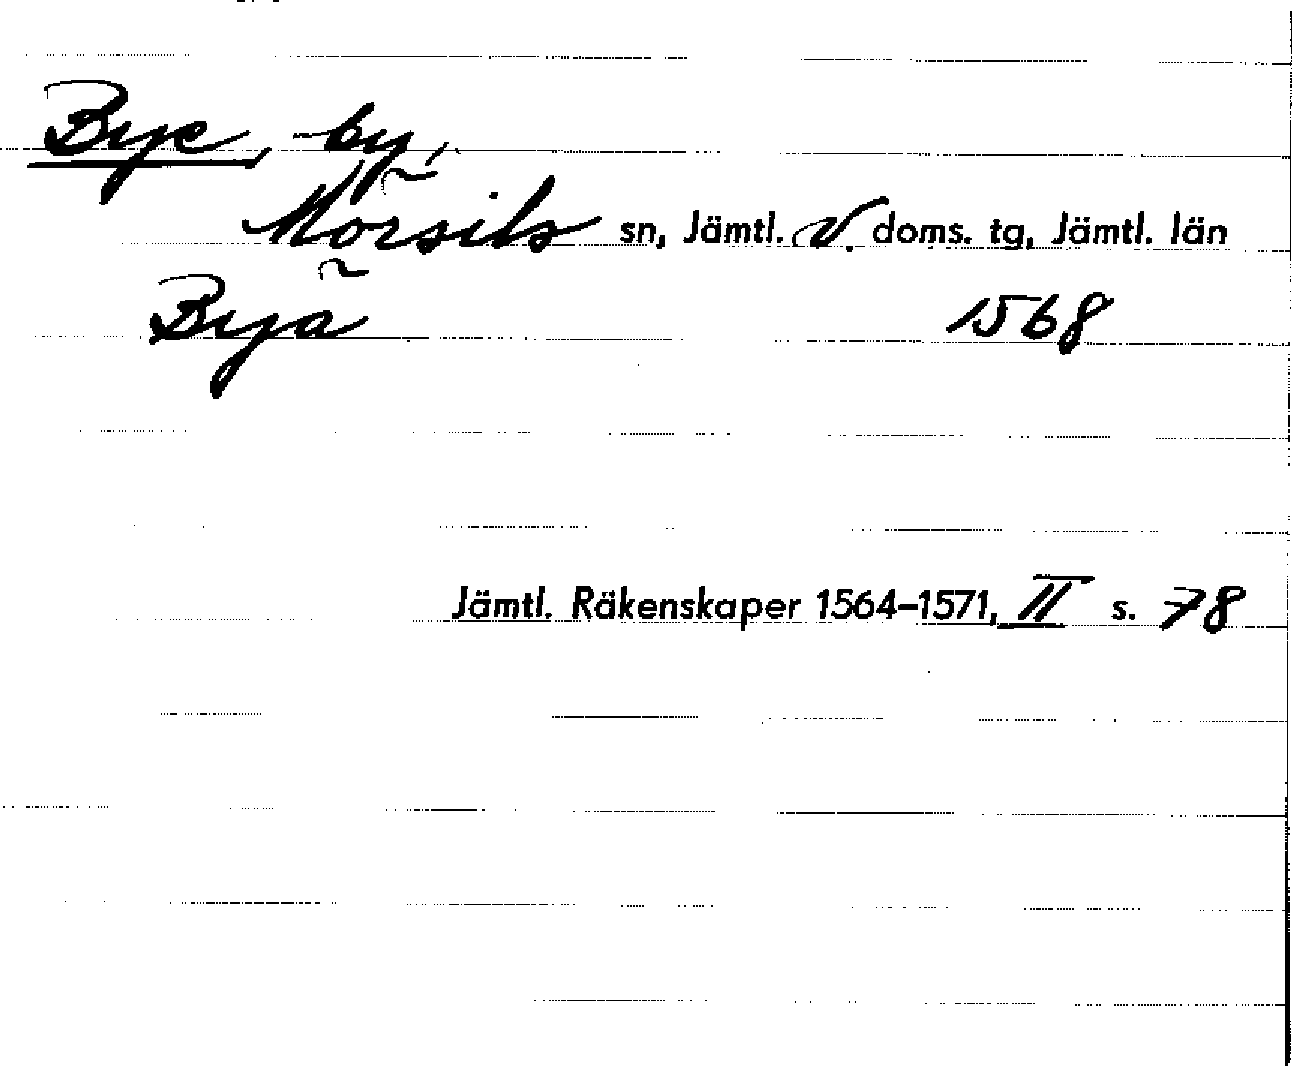 Bye, by,
Mörsils sn, Jämtl. V. doms. tg, Jämtl. län
Byä 1568
Jämtl. Räkenskaper 1564–1571, II s. 78